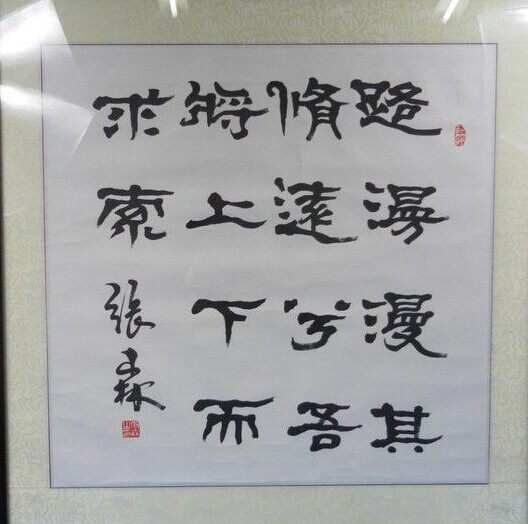 路漫漫其
脩遠兮吾
將上下而
求索
張森